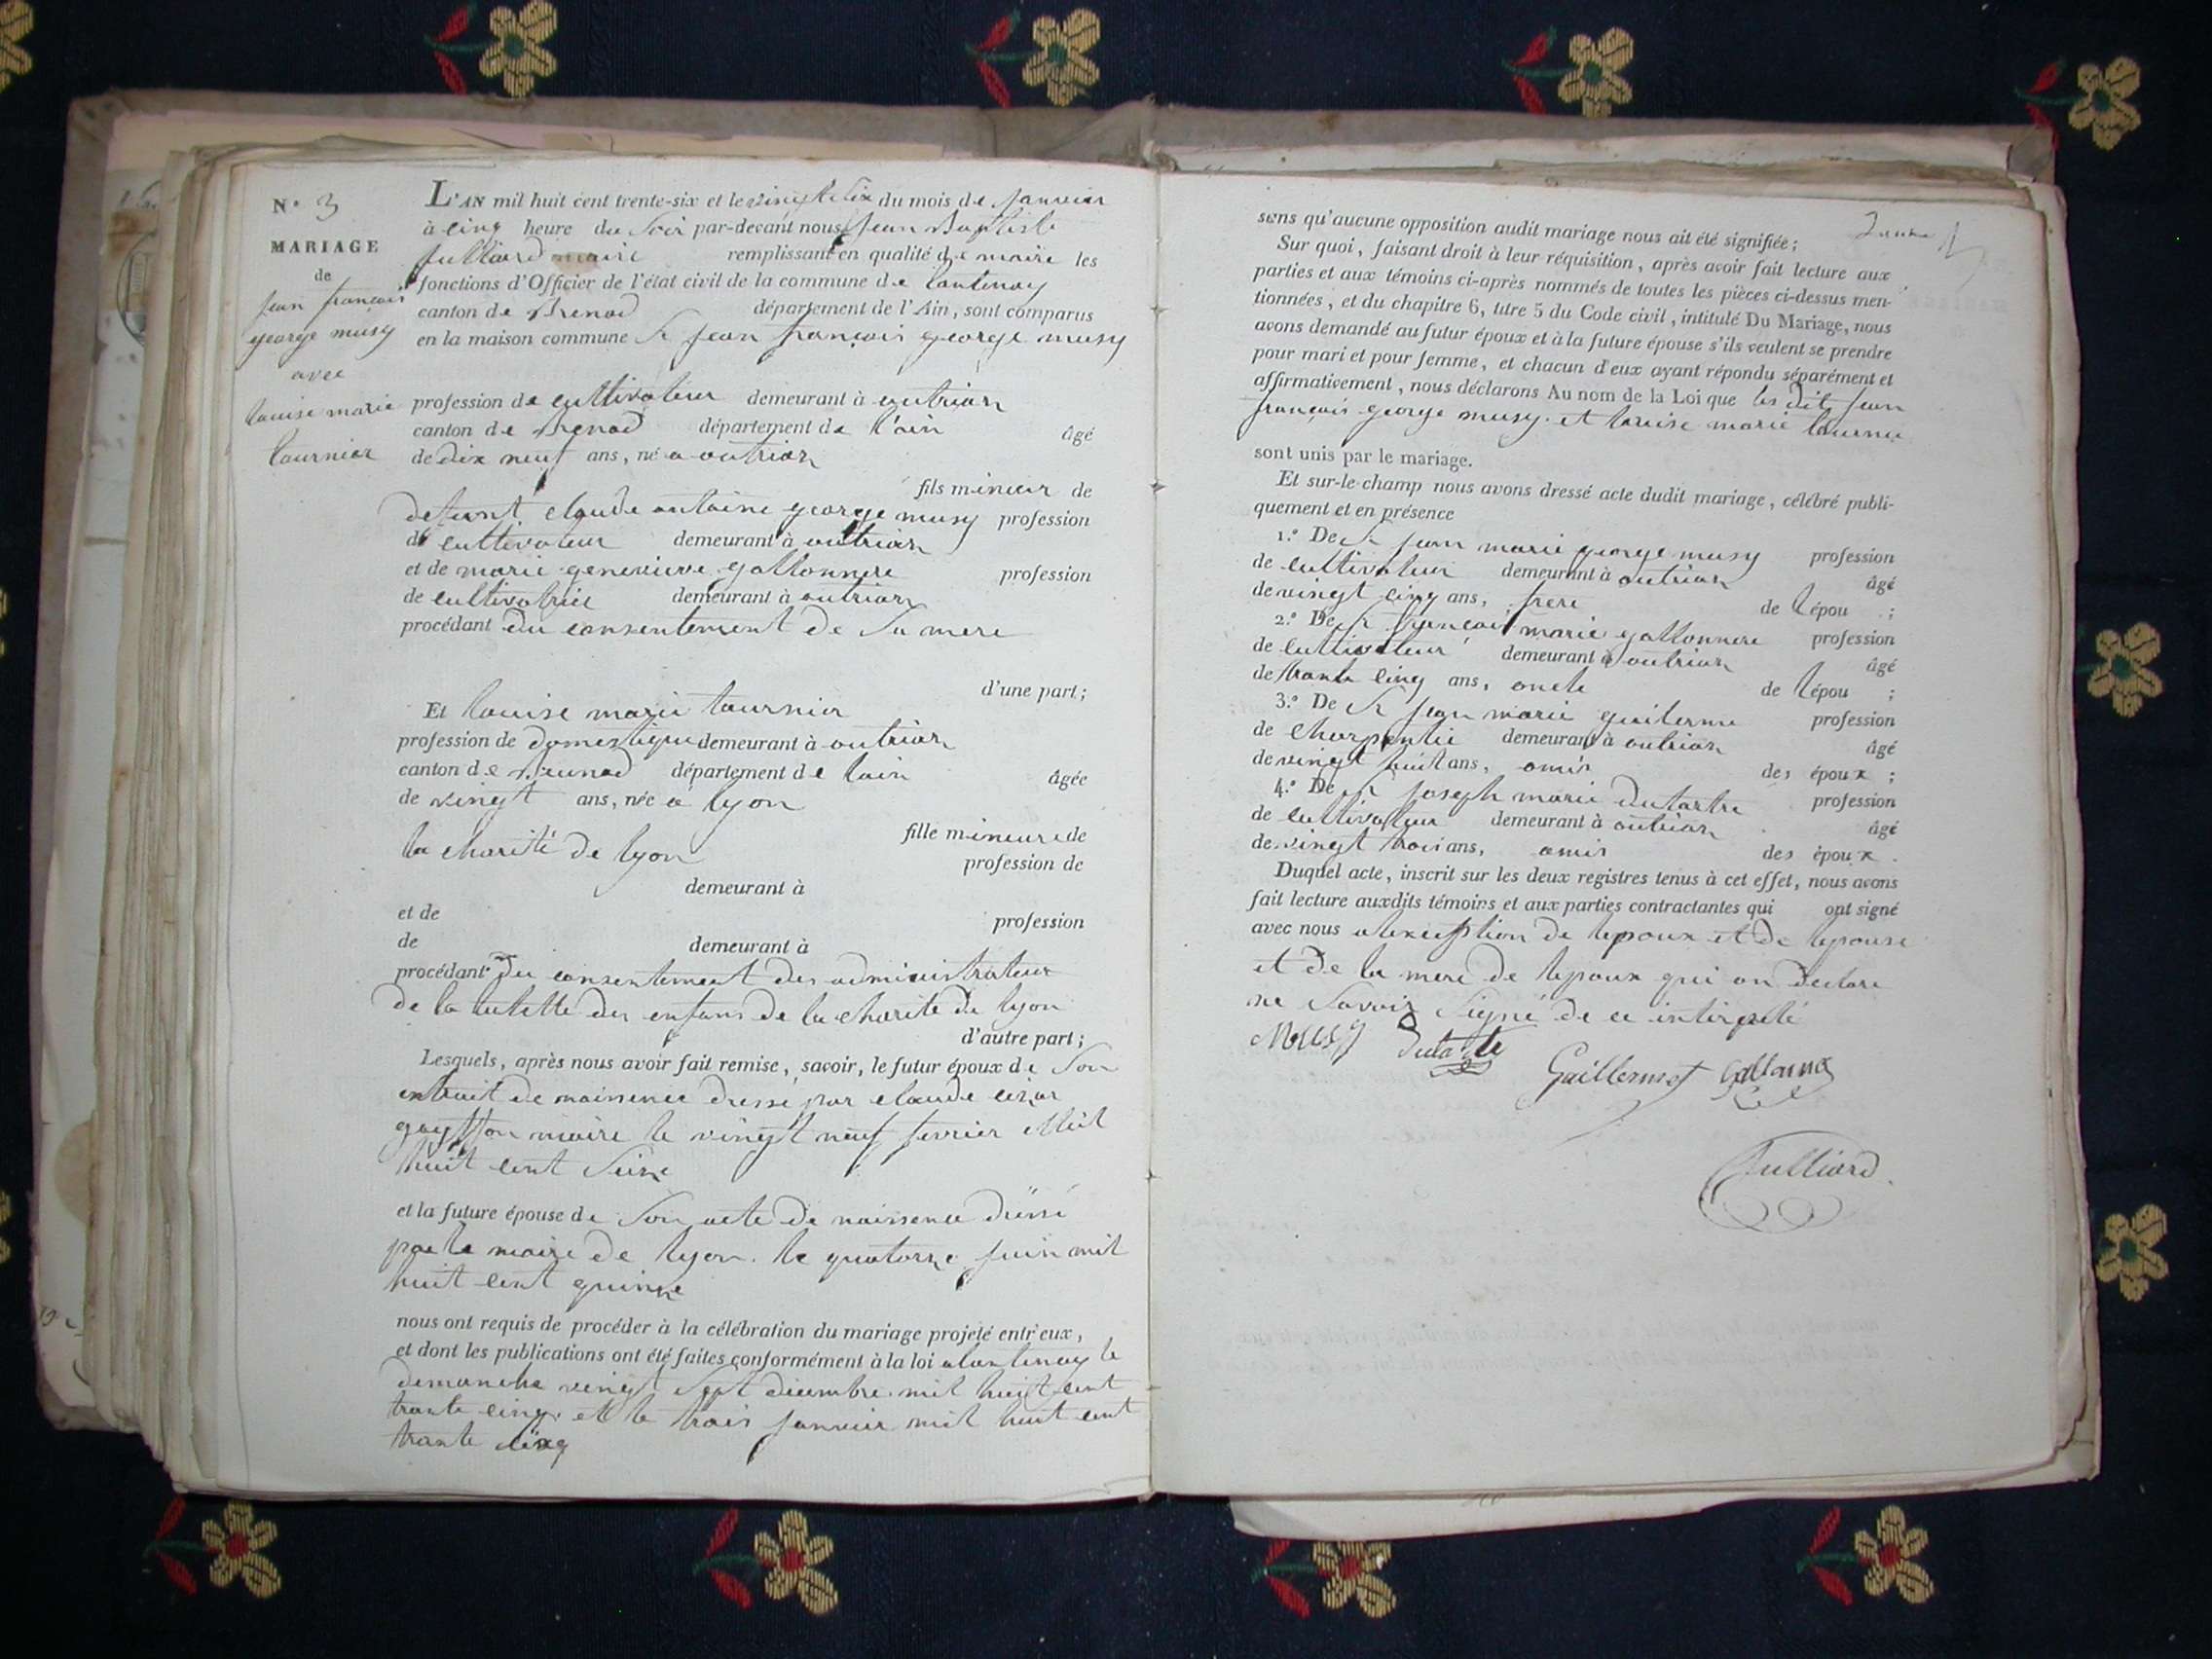 N.º 3
MARIAGE
de
jean françois
george musy
avec
louise marie
tournier
L'AN mil huit cent trente-six et le vingt six du mois de janvier
à cinq heure du soir par-devant nous jean Baptiste
julliard maire remplissant en qualité de maire les
fonctions d'Officier de l'état civil de la commune de lantenay
canton de Brenod département de l'Ain, sont comparus
en la maison commune Sr jean françois george musy
profession de cultivateur demeurant à outrian
canton de Brenod département de l'ain âgé
de dix neuf ans, né a outrian
fils mineur de
defunt claude antoine george musy profession
de cultivateur demeurant à outrian
et de marie genevieve gallonnere profession
de cultivatrice demeurant à outrian
procédant du consentement de Sa mere
d'une part;
Et louise marie tournier
profession de domestique demeurant à outrian
canton de Brenod département de lain âgée
de vingt ans, née a lyon
fille mineure de
la charité de lyon profession de
demeurant à
et de profession
de demeurant à
procédant du consentement des administrateur
de la tutelle des enfans de la charité de lyon
d'autre part;
Lesquels, après nous avoir fait remise, savoir, le futur époux de Son
extrait de naissence dressé par claude
maire le vingt neuf fevrier Mil
huit cent Seize
et la future épouse de Son acte de naissence dressé
par le maire de lyon. le quatorze juin mil
huit cent quinze
nous ont requis de procéder à la célébration du mariage projeté entr'eux,
et dont les publications ont été faites conformément à la loi a lantenay le
dimanche vingt Sept decembre mil huit cent
trante cinq. et le trois janvier mil huit cent
trante
sans qu'aucune opposition audit mariage nous ait été signifiée;
Sur quoi, faisant droit à leur réquisition, après avoir fait lecture aux
parties et aux témoins ci-après nommés de toutes les pièces ci-dessus men-
tionnées, et du chapitre 6, titre 5 du Code civil, intitulé Du Mariage, nous
avons demandé au futur époux et à la future épouse s'ils veulent se prendre
pour mari et pour femme, et chacun d'eux ayant répondu séparément et
affirmativement, nous déclarons Au nom de la Loi que les dit jean
françois george musy. et louise marie tournie
sont unis par le mariage.
Et sur-le-champ nous avons dressé acte dudit mariage, célébré publi-
quement et en présence
1.º De Sr jean marie george musy profession
de cultivateur demeurant à outrian âgé
de vingt cinq ans, frere de lépou ;
2.º De Sr françois marie gallonnere profession
de cultivateur demeurant à outrian âgé
de trante cinq ans, oncle de lépou ;
3.º De Sr jean marie guilerme profession
de charpentie demeurant à outrian âgé
de vingt huit ans, amis des époux ;
4.º De Sr joseph marie dutartre profession
de cultivateur demeurant à outrian âgé
de vingt trois ans, amis des époux.
Duquel acte, inscrit sur les deux registres tenus à cet effet, nous avons
fait lecture auxdits témoins et aux parties contractantes qui ont signé
avec nous a lexception de lepoux et de lepouse
et de la mere de lepoux qui on declare
ne Savoir Signé de ce
Musy Dutartre
Guillermet
Julliard